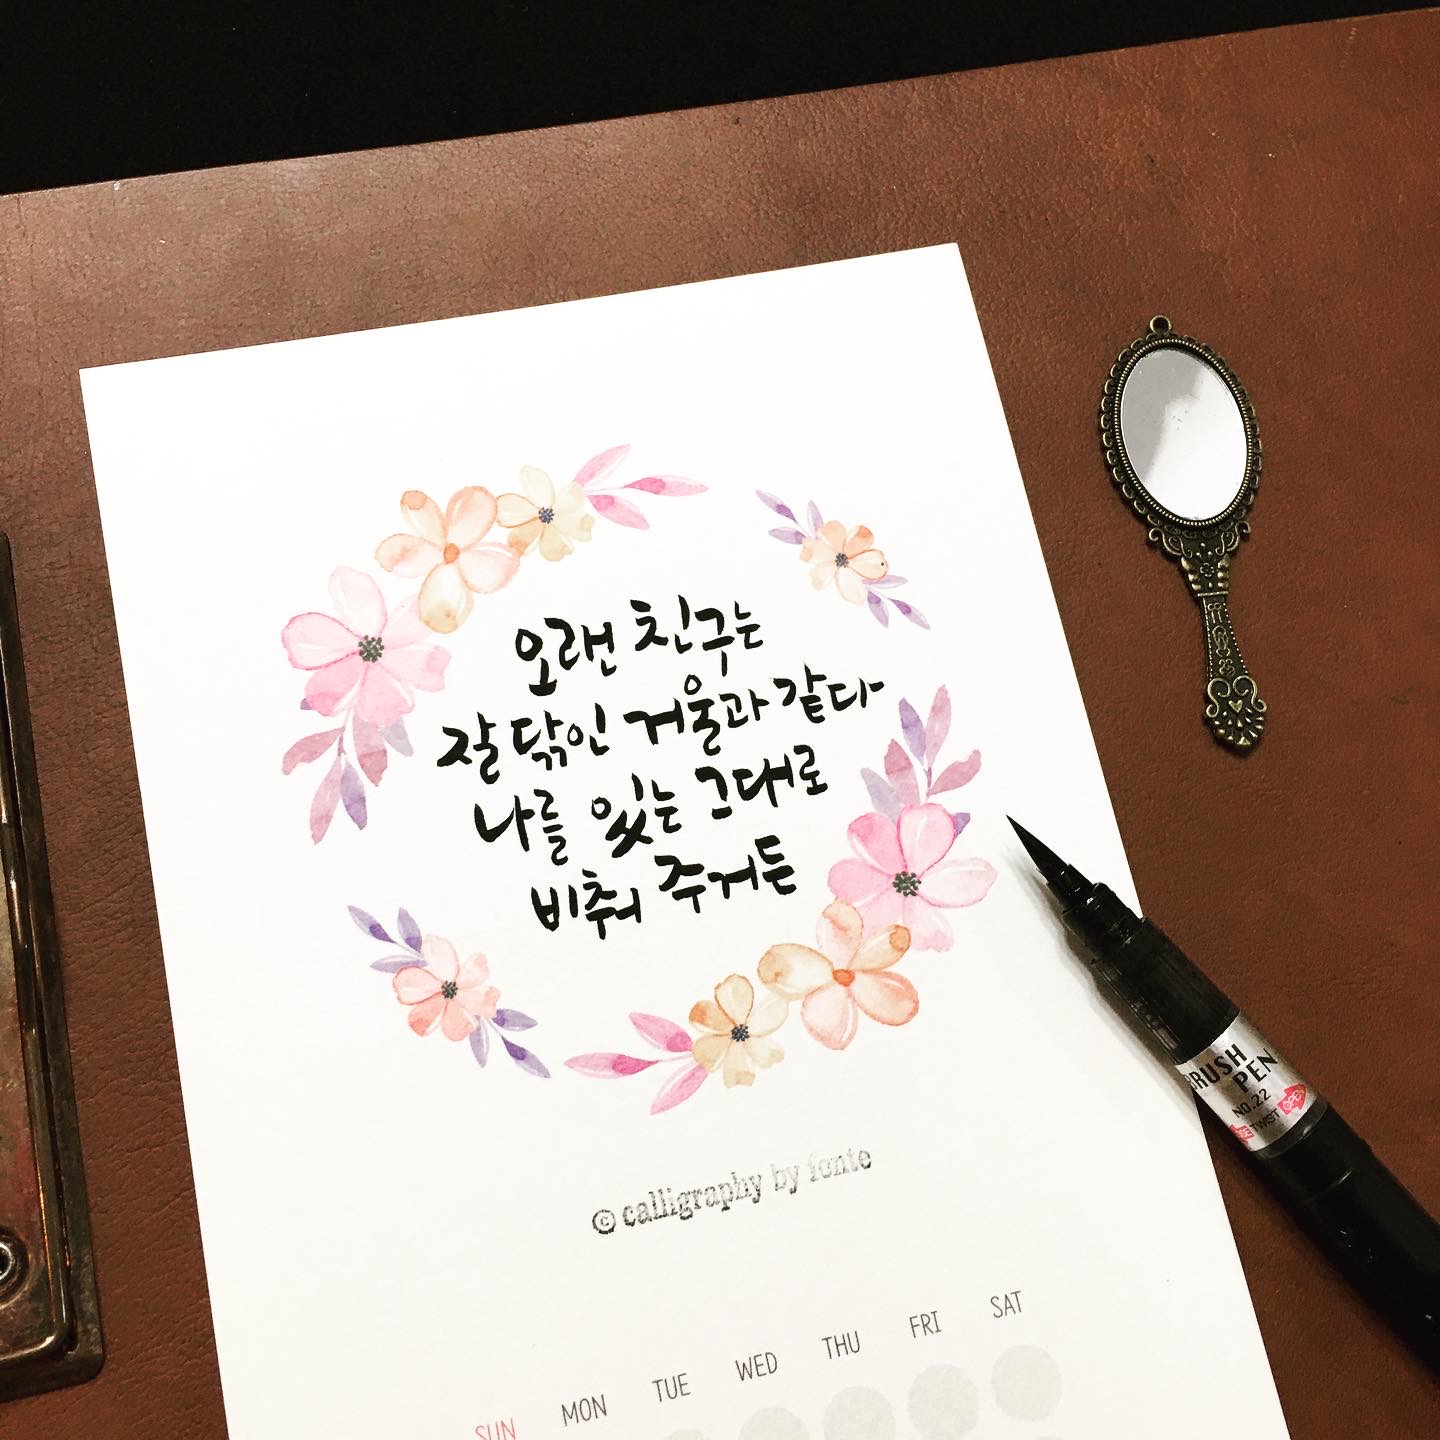 오랜 친구는
잘 닦인 거울과 같다
나를 있는 그대로
비춰 주거든
© calligraphy by fonte
SUN MON TUE WED THU FRI SAT
BRUSH
PEN
NO.22
TWIST OPEN